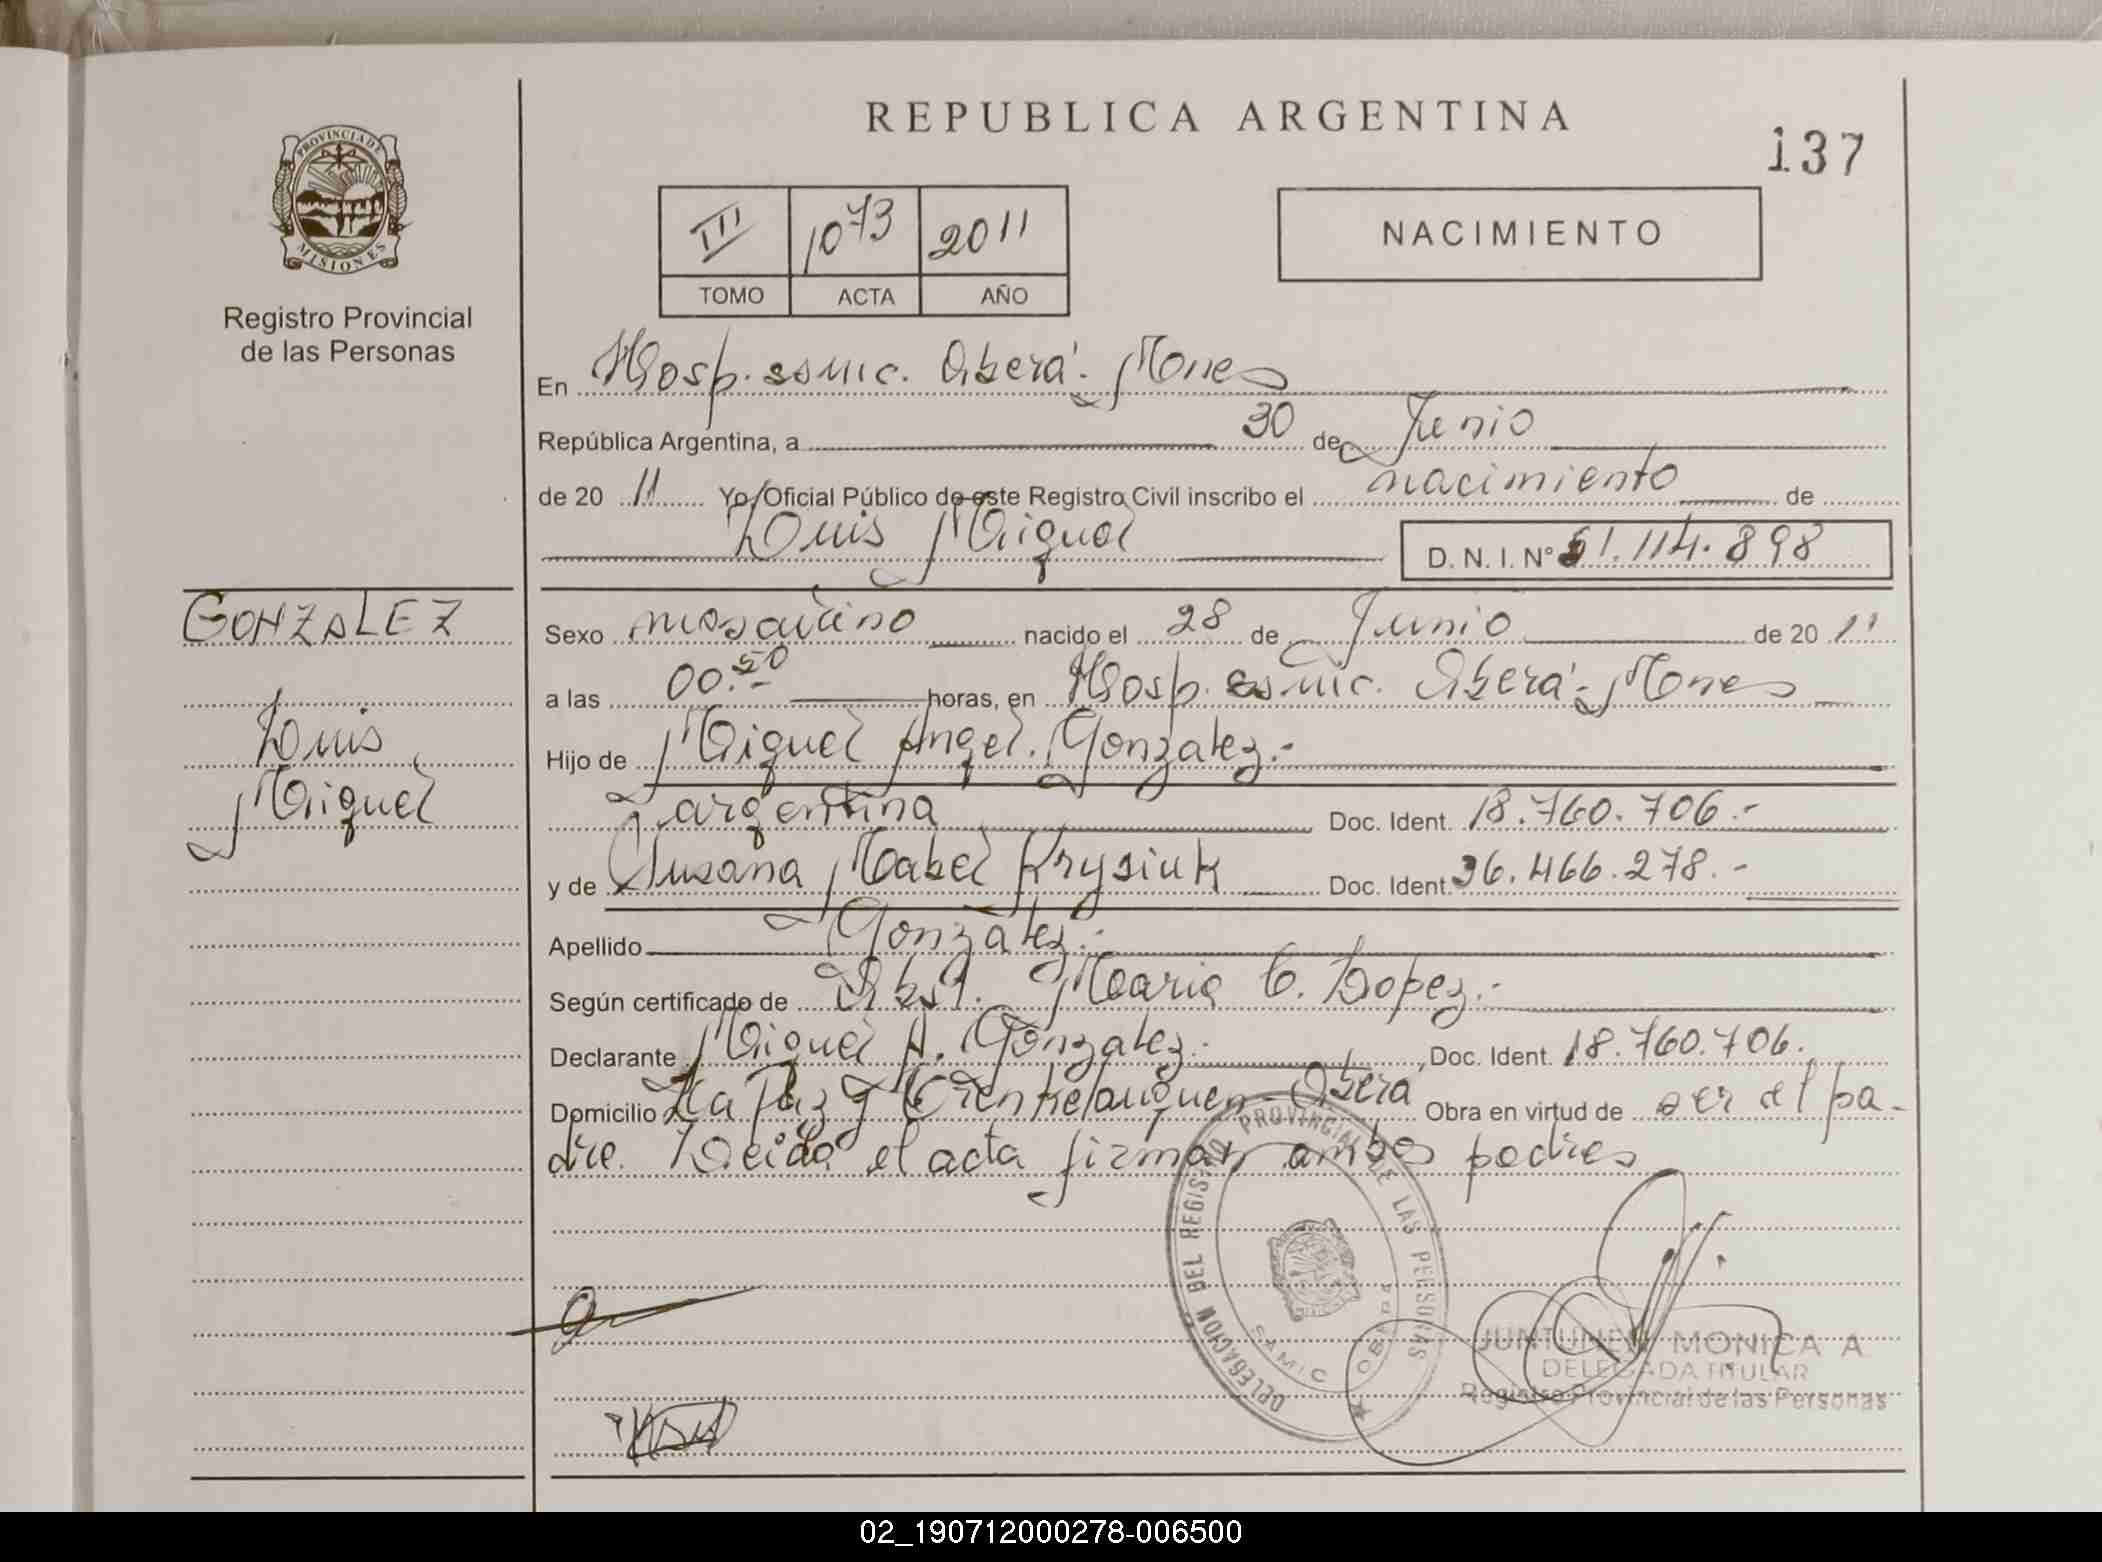 REPUBLICA ARGENTINA
137
PROVINCIA DE
MISIONES
Registro Provincial
de las Personas
III 1073 2011
TOMO ACTA AÑO
NACIMIENTO
En Hosp. samic. Oberá - Mnes
República Argentina, a 30 de Junio
de 20 11 Yo, Oficial Público de este Registro Civil inscribo el nacimiento de
Luis Miguel D. N. I. Nº 51.114.898
GONZALEZ
Luis
Miguel
Sexo masculino nacido el 28 de Junio de 20 11
a las 00.50 horas, en Hosp. samic. Oberá - Mnes
Hijo de Miguel Angel Gonzalez.-
argentina Doc. Ident. 18.760.706.-
y de Susana Mabel Krysiuk Doc. Ident. 36.466.278.-
Apellido Gonzalez.-
Según certificado de Obst. Maria C. Lopez.-
Declarante Miguel A. Gonzalez.- Doc. Ident. 18.760.706.
Domicilio La Paz y Trenkelauquen - Oberá Obra en virtud de ser el pa-
dre. Leida el acta firman ambos padres
DELEGACION DEL REGISTRO PROVINCIAL DE LAS PERSONAS
SAMIC OBERA
JUNTUNEN MONICA A
DELEGADA TITULAR
Registro Provincial de las Personas
02_190712000278-006500